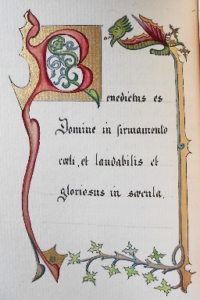 Benedictus es
Domine in firmamento
cœli, et laudabilis et
gloriosus in sæcula.